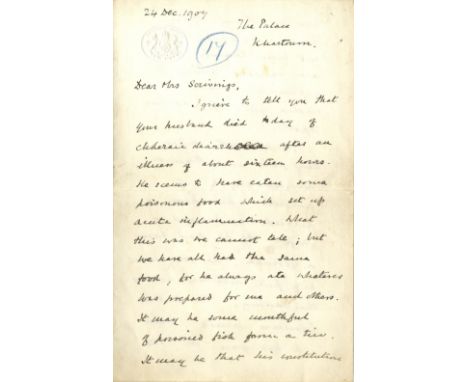 24 Dec. 1907
The Palace
17
Khartoum.
Dear Mrs Scrivings,
I grieve to tell you that
your husband died today of
choleraic after an
illness of about sixteen hours.
He seems to have eaten some
poisonous food which set up
acute inflammation. What
this was we cannot tell; but
we have all had the same
food, for he always ate whatever
was prepared for me and others.
It may be some mouthful
of poisoned fish from a tin.
It may be that his constitution